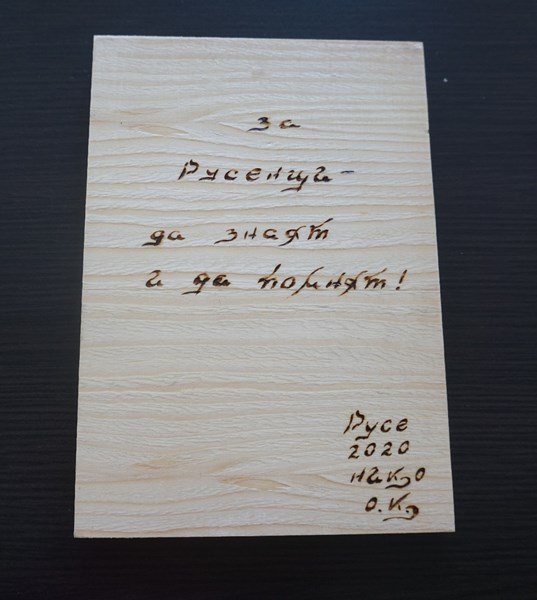 за
Русенци -
да знаят
и да помнят!
Русе
2020